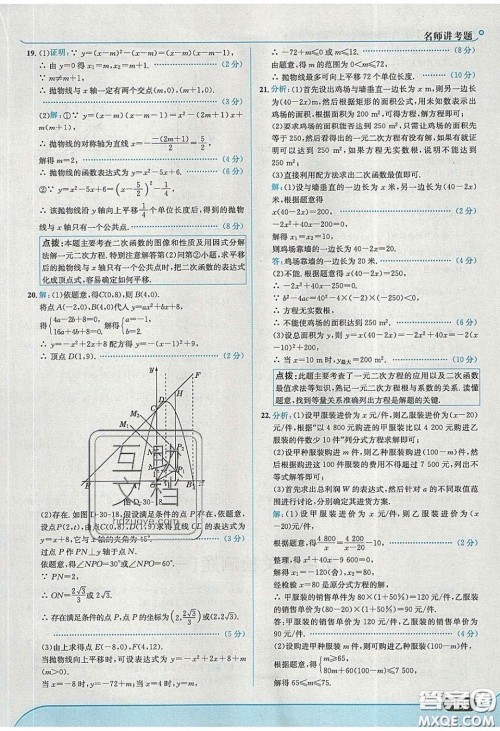 名师讲考题
19.(1)证明:∵y=(x-m)²-(x-m)=(x-m)(x-m-1),
∴由y=0得x₁=m,x₂=m+1. (2分)
∵m≠m+1,
∴抛物线与x轴一定有两个交点(m,0),(m+1,0).
(4分)
(2)解:①∵y=(x-m)²-(x-m)=x²-(2m+1)x+
m(m+1),
∴抛物线的对称轴为直线x=-\frac{-(2m+1)}{2}=\frac{5}{2},
解得m=2; (4分)
∴抛物线的函数表达式为y=x²-5x+6. (6分)
②∵y=x²-5x+6=(x-\frac{5}{2})²-\frac{1}{4},
∴该抛物线沿y轴向上平移\frac{1}{4}个单位长度后,得到的抛物
线与x轴只有一个公共点. (8分)
点拨:本题主要考查二次函数的图像和性质及用因式分解
法解一元二次方程.特别注意解答第(2)问第②小题,求平移
后的抛物线与x轴只有一个公共点时,把二次函数的表达式
化成顶点式,容易确定如何平移.
20.解:(1)依题意,得C(0,8),则B(4,0).
将点A(-2,0),B(4,0)代入y=ax²+bx+8,
得{4a-2b+8=0, 16a+4b+8=0. 解得{a=-1, b=2.
∴y=-x²+2x+8配方得y=-(x-1)²+9,
∴顶点D(1,9). (2分)
图D-30-18
(2)存在.如图D-30-18,假设满足条件的点P存在,依题意,
设点P(2,t),由点C(0,8),D(1,9)求得直线CD的表达式为y=
x+8,它与x轴的夹角为45°. (3分)
过点P作PN⊥y轴于点N.
依题意,得∠NPO=30°或∠NPO=60°.
∵PN=2,
∴ON=\frac{2\sqrt{3}}{3}或2\sqrt{3}.
∴存在满足条件的点P,点P的坐标为(2,\frac{2\sqrt{3}}{3})或(2,2\sqrt{3}).
(5分)
(3)由上求得点E(-8,0),F(4,12).
当抛物线向上平移时,可设表达式为y=-x²+2x+8+m
(m>0).
当x=-8时,y=-72+m;当x=4时,y=m.
∴-72+m≤0或m≤12. (8分)
由题意,得m≤72,∴0<m≤72.
∴抛物线最多可向上平移72个单位长度. (10分)
21.分析:(1)首先设出鸡场与墙垂直一边长为x m,则另一边长
为(40-2x)m,然后根据矩形的面积公式,用未知数表示出
鸡场的面积,根据面积为200 m²,可得方程,解方程即可;
(2)要求鸡场的面积能否达到250 m²,只需让鸡场的面积先
等于250,然后看得出的一元二次方程有没有解,如果有就证
明可以达到250 m²,如果方程无实数根,说明不能达到
250 m²;
(3)直接利用配方法求出二次函数最值即可.
解:(1)设与墙垂直的一边长为x米,另一边长为(40-2x)
米,根据题意,得
x(40-2x)=200, (2分)
∴x²-20x+100=0,
解得x₁=x₂=10,
则鸡场靠墙的一边长为40-2x=20.
答:鸡场靠墙的一边长为20米. (4分)
(2)不能.根据题意,得x(40-2x)=250,
∴-2x²+40x-250=0.
∵b²-4ac=40²-4×(-2)×(-250)<0,
∴方程无实数根,
∴不能使鸡场的面积达到250 m². (6分)
(3)设总面积为y m²,则y=x(40-2x)=-2x²+40x=-2(x-
10)²+200.
∴当x=10 m时,y最大=200 m². (10分)
点拨:此题主要考查了一元二次方程的应用以及二次函数
最值求法等知识,熟记一元二次方程根与系数的关系.读懂
题意,找到等量关系准确列出方程是解题的关键.
22.分析:(1)设甲服装进价为x元/件,则乙服装进价为(x-20)
元/件,根据“以4 800元购进的甲服装比以4 200元购进乙
服装的件数少10件”列分式方程求解即可;
(2)设甲种服装购进m件,则乙种服装购进(100-m)件,然后
根据购进这100件服装的费用不得超过7 500元,列出不
等式解答即可;
(3)首先求出总利润W的表达式,然后针对a的不同取值范
围进行讨论,分别确定其进货方案.
解:(1)设甲服装进价为x元/件,则乙服装进价为(x-20)
元/件,
根据题意,得\frac{4 800}{x}=\frac{4 200}{x-20}-10, (2分)
整理,得x²+40x-9 600=0,
解得x₁=-120(舍),x₂=80.
经检验x=80是原分式方程的解,
∴甲服装的销售单价为80×(1+50%)=120元/件,乙服装
的销售单价为(80-20)×(1+50%)=90元/件.
答:甲服装的销售单价为120元/件,乙服装的销售单价为
90元/件. (4分)
(2)设甲种服装购进m件,则可购进乙种服装(100-m)件,
根据题意,得{m≥65, 80m+60(100-m)≤7 500.
解得65≤m≤75. (6分)
互动文档
hdzuoye.com
答案圈
MXQE.COM